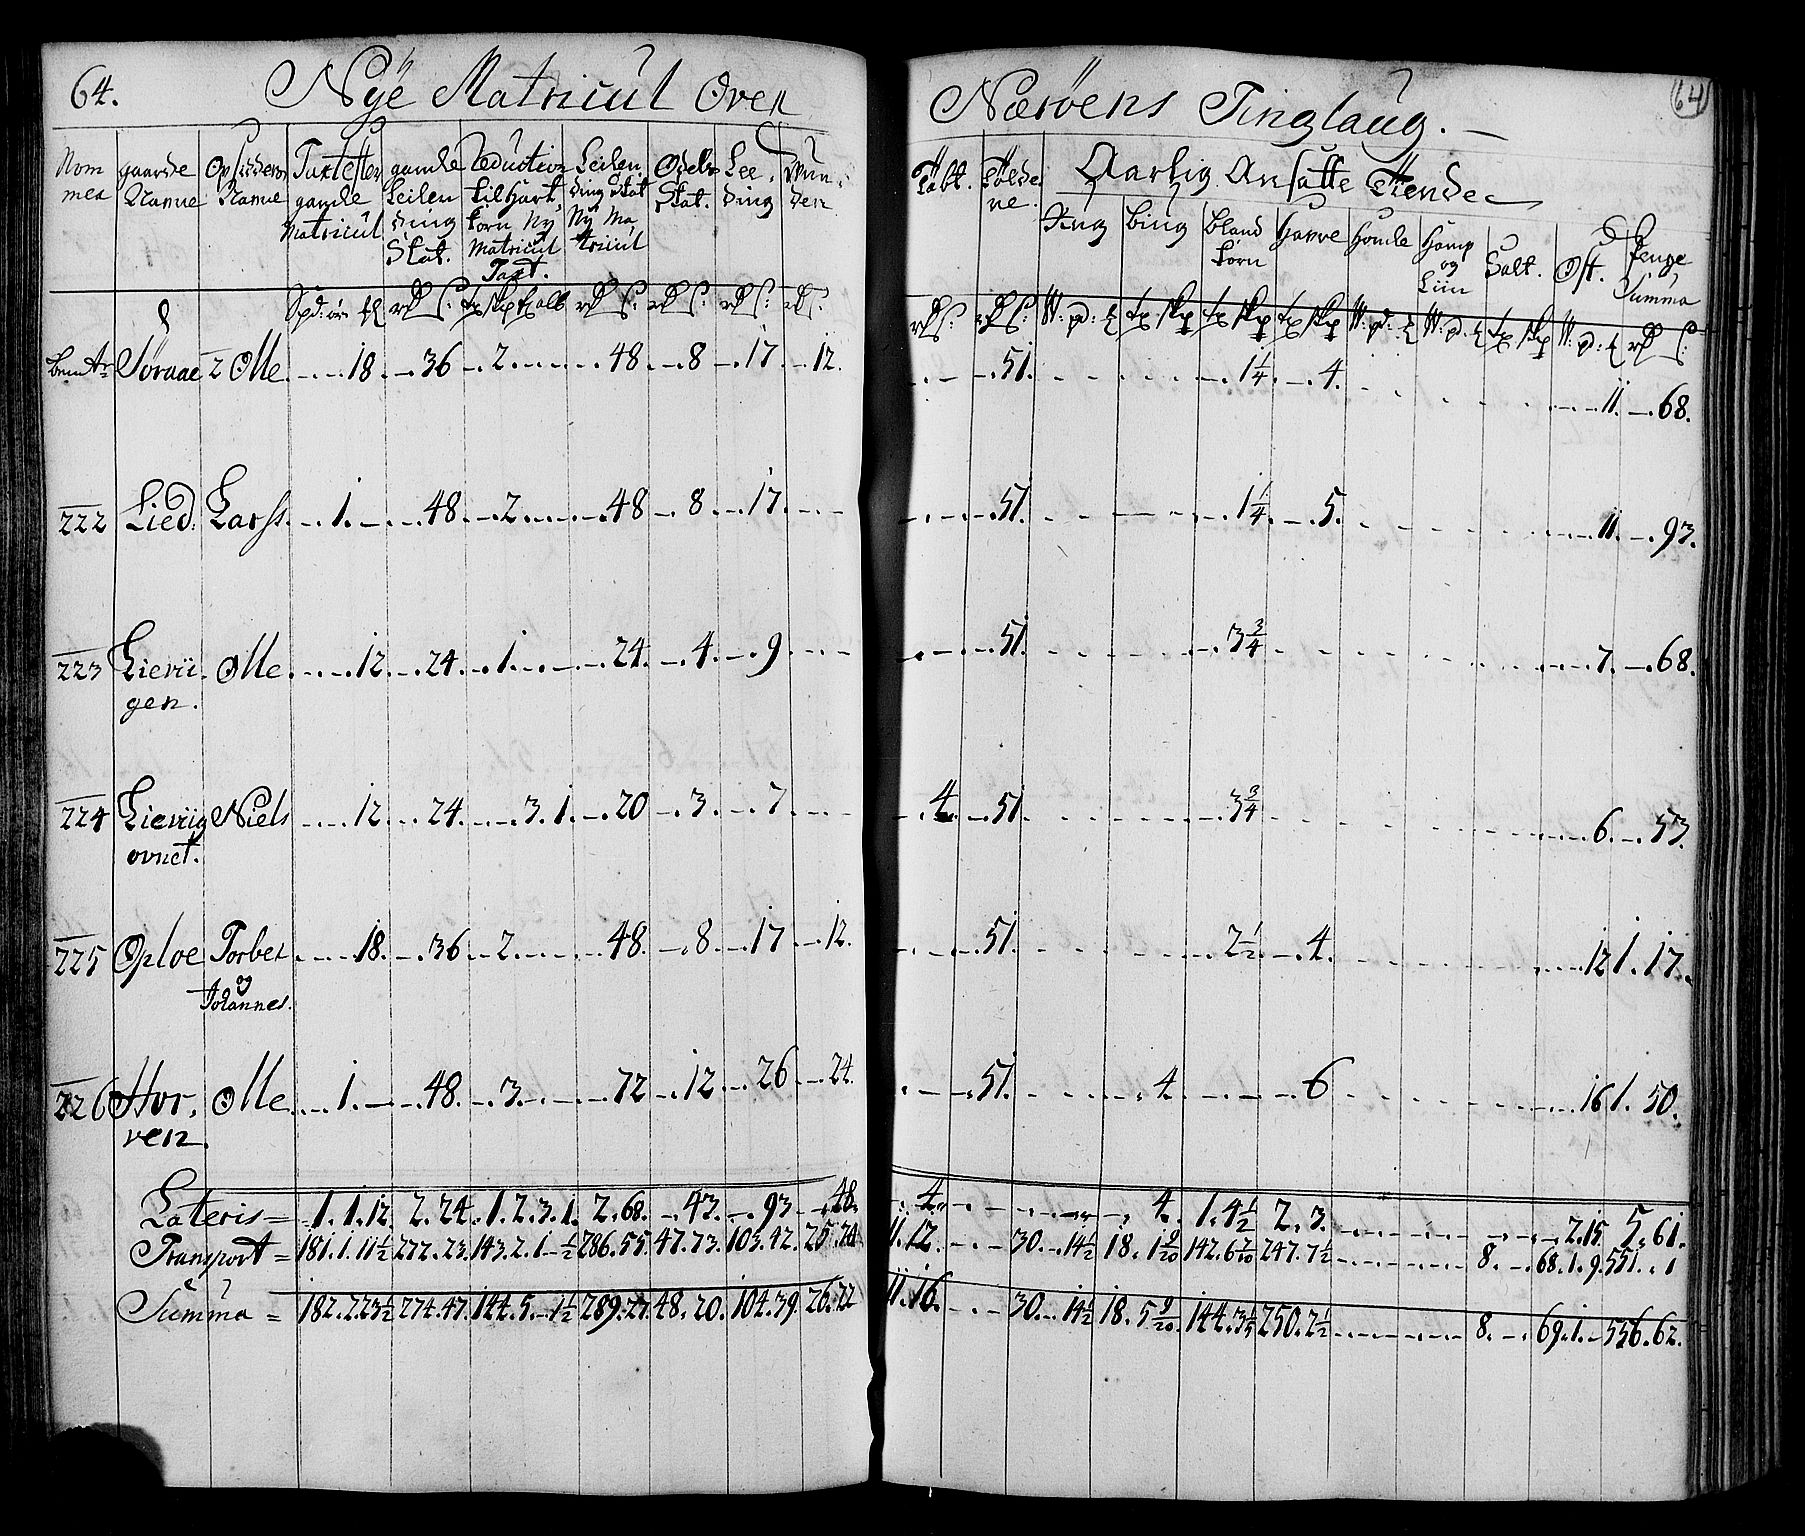 64. Nÿe Matricul Over Nærøens Tinglaug. 64
Nom mer | gaarde Navne | Opsidders Navne | Taxt efter gamle Matricul | gamle Leilending Skat. | Reduction til Hart. korn Nÿ Matricul Taxt. | Leilen. ding Skat Nÿ Matricul | Odels Skat. | Lee, ding | | | Tolde | Aarlig Ansatte Tiende
Ting | bing | bland korn | Havre | Homle | Hamp og Liin | Salt. | Ost. | Penge Summa
Søraae | 2 Olle | 18 | 36 | 2 | 48 | 8 | 17 | 12. | 51 | 1¼ | 4. | 11 | 68.
222 | Lied. | Larss. | 1. | 48. | 2 | 48 | 8 | 17. | 51. | 1¼ | 5. | 11. | 93.
223 | Lierii. | Olle | 12. | 24. | 1. | 24. | 4. | 9 | 51. | 3¾ | 7. | 68.
gen.
224 | Lieriig | Niels | 12. | 24. | 3. 1. | 20 | 3. | 7 | 4. | 51 | 3¾ | 6. | 53.
ovnet.
225 | Oploe | Torber | 18. | 36. | 2 | 48. | 8. | 17 | 12. | 51. | 2½ | 4. | 12 | 1. 17.
og
Johannes.
226 | Hor, | Olle | 1. | 48. | 3. | 72 | 12. | 26 | 24. | 51. | 4. | 6 | 16 | 1. 50.
ven.
Lateris = | 1. 1. 12. | 2. 24. | 1. 2. 3. 1. | 2. 68. | 43. | 93 | 48. | 4. | 4. | 1. 4½ | 2. 3. | 2. 15 | 5. 61.
Transport = | 181. 1. 11½ | 272. 23. | 143. 2. 1. ½ | 286. 55. | 47. 73. | 103. 42. | 25. | 11. 12. | 30. 14½ | 18. 1 9/20 | 142. 6 7/10 | 247. 7½ | 8. | 68. 1. 9. | 551. 1
Summa = | 182. 2 23½ | 274. 47. | 144. 5. 1½ | 289. 27. | 48. 20. | 104. 39. | 26. 22 | 11. 16. | 30. 14½ | 18. 5 9/20 | 144. 3 1/5 | 250. 2½ | 8. | 69. 1. | 556. 62.